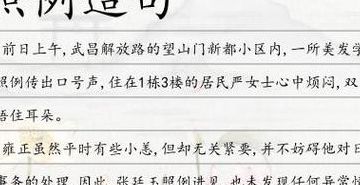 照例造句
前日上午，武昌解放路的望山门新都小区内，一所美发学
照例传出口号声，住在1栋3楼的居民严女士心中烦闷，双
捂住耳朵。
雍正虽然平时有些小恙，但却无关紧要，并不妨碍他对日
事务的处理，因此，张廷玉照例进见，也未发现任何异常